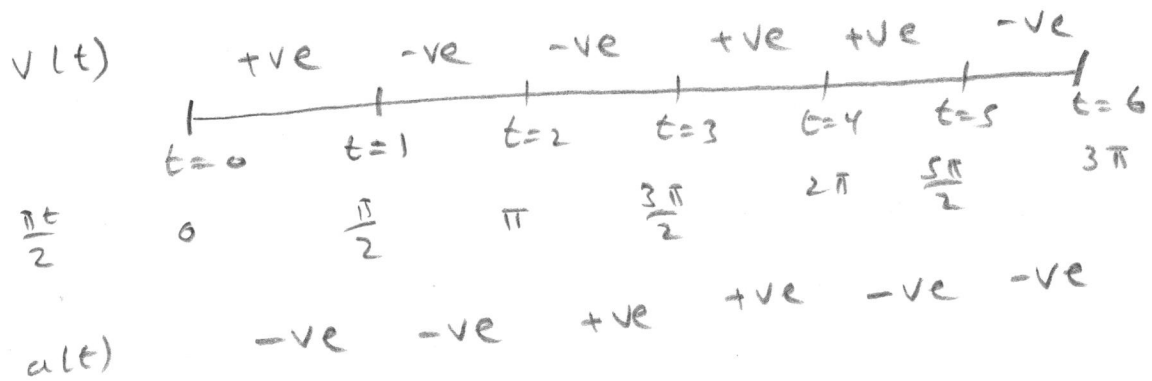 v(t) +ve -ve -ve +ve +ve -ve
t=0 t=1 t=2 t=3 t=4 t=5 t=6
πt/2 0 π/2 π 3π/2 2π 5π/2 3π
a(t) -ve -ve +ve +ve -ve -ve